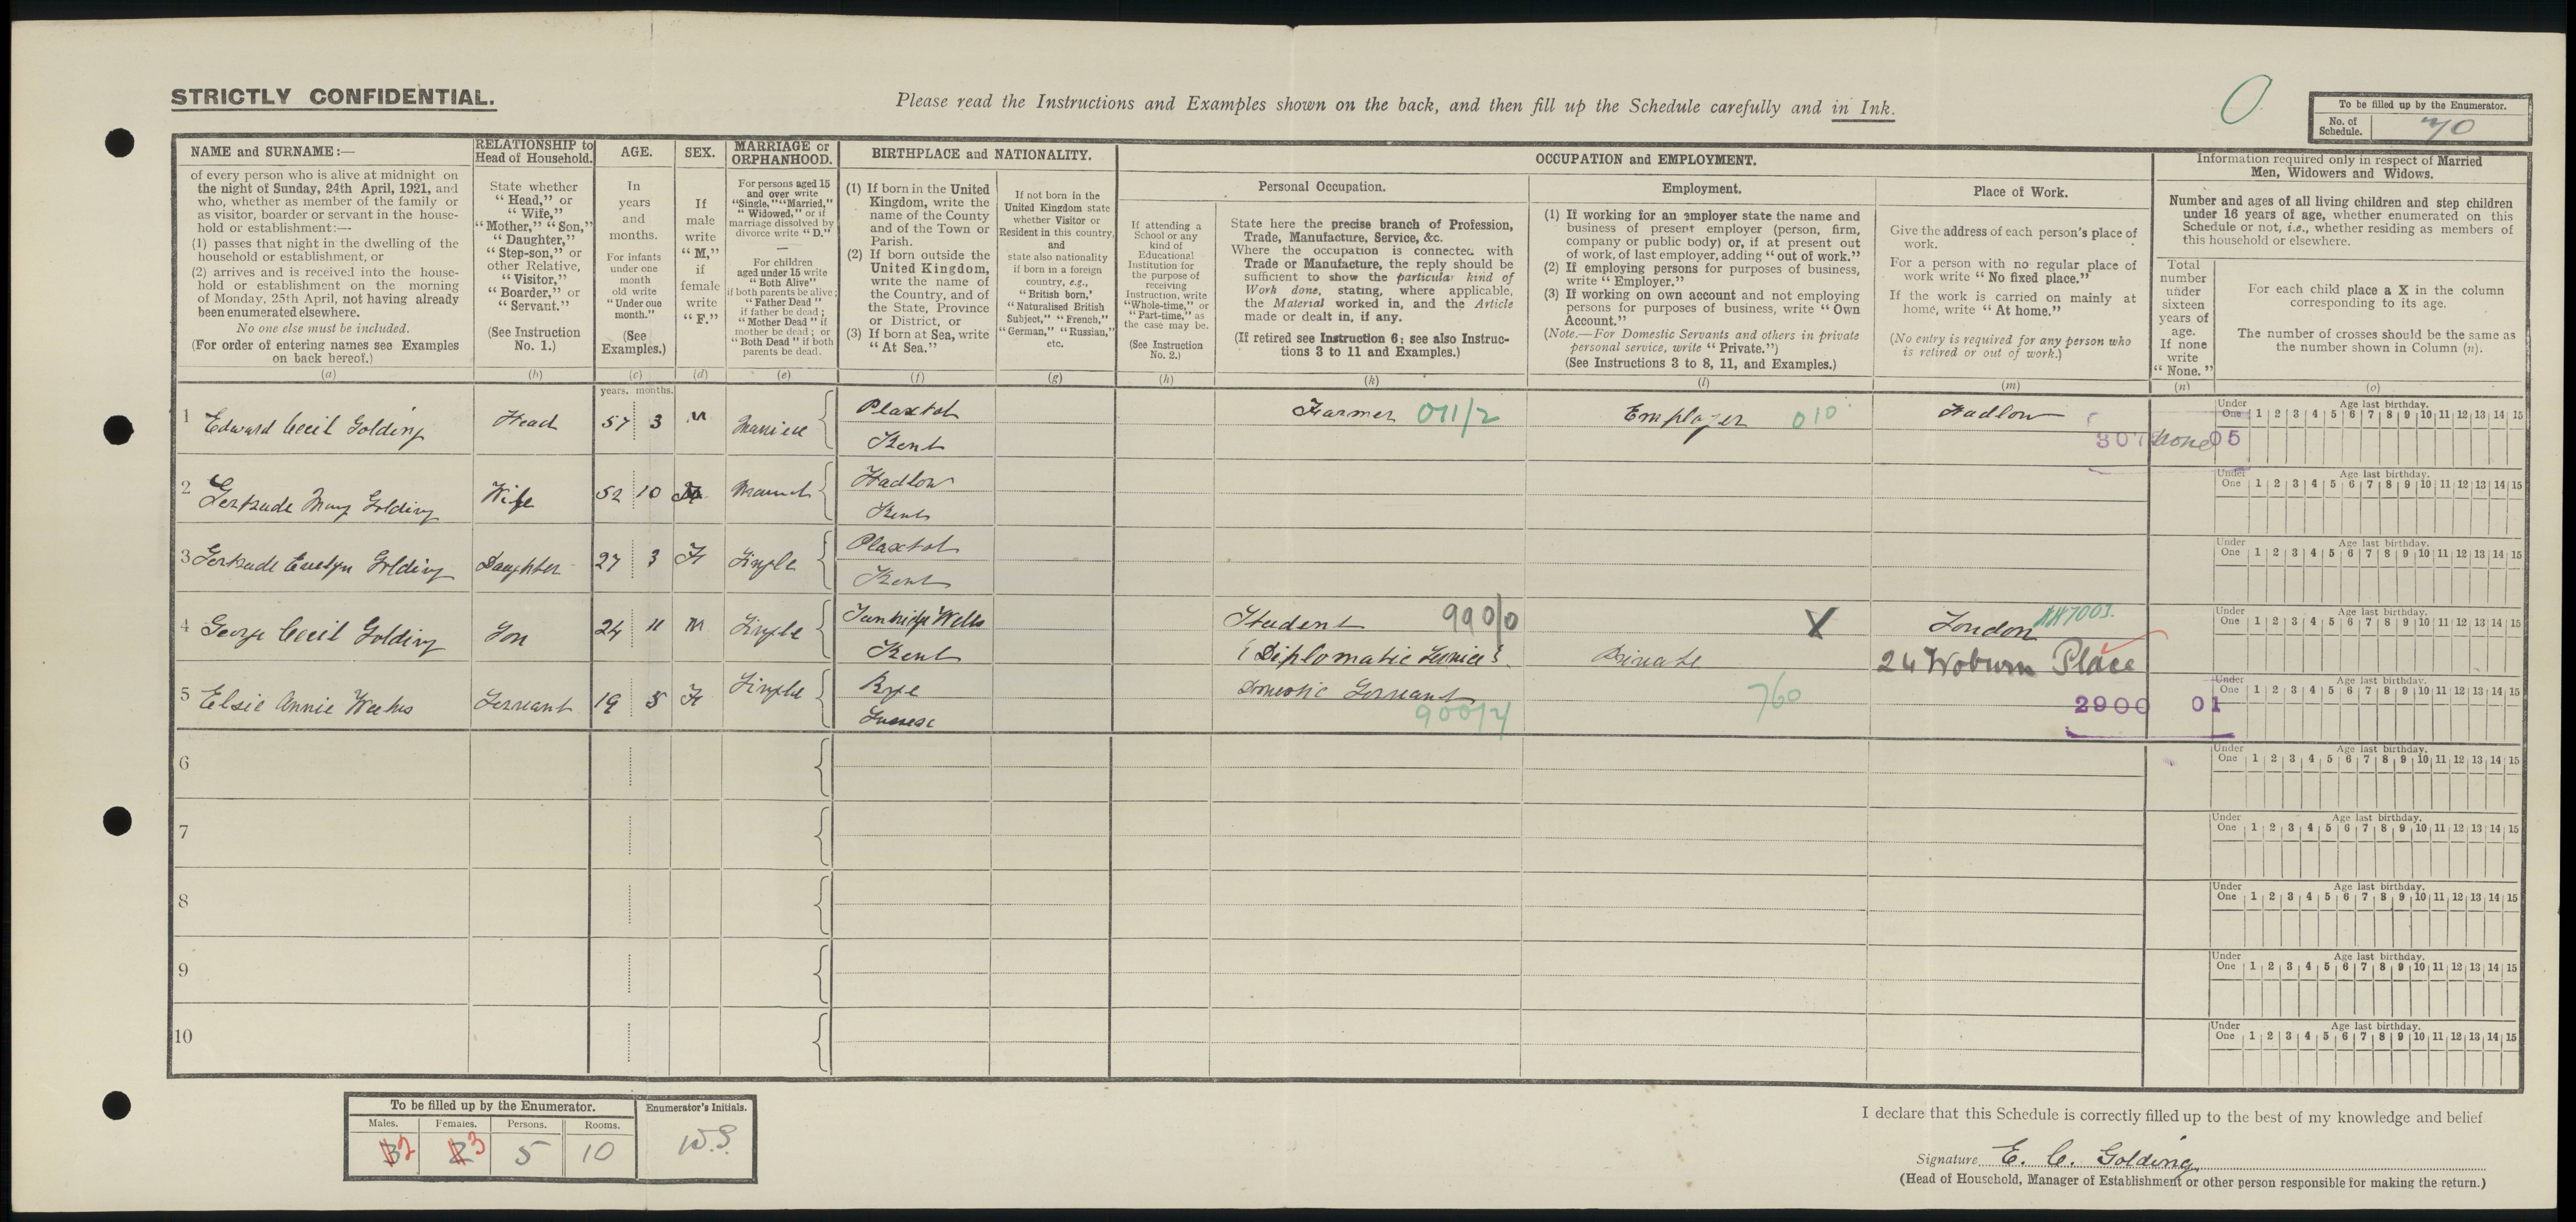 STRICTLY CONFIDENTIAL.
Please read the Instructions and Examples shown on the back, and then fill up the Schedule carefully and in Ink.
0
To be filled up by the Enumerator.
No. of Schedule. 70
NAME and SURNAME:—
of every person who is alive at midnight on
the night of Sunday, 24th April, 1921, and
who, whether as member of the family or
as visitor, boarder or servant in the house-
hold or establishment:—
(1) passes that night in the dwelling of the
household or establishment, or
(2) arrives and is received into the house-
hold or establishment on the morning
of Monday, 25th April, not having already
been enumerated elsewhere.
No one else must be included.
(For order of entering names see Examples
on back hereof.)
(a)
RELATIONSHIP to
Head of Household.
State whether
"Head," or
"Wife,"
"Mother," "Son,"
"Daughter,"
"Step-son," or
other Relative,
"Visitor,"
"Boarder," or
"Servant."
(See Instruction
No. 1.)
(b)
AGE.
In
years
and
months.
For infants
under one
month
old write
"Under one
month."
(See
Examples.)
(c)
SEX.
If
male
write
"M,"
if
female
write
"F."
(d)
MARRIAGE or
ORPHANHOOD.
For persons aged 15
and over write
"Single," "Married,"
"Widowed," or if
marriage dissolved by
divorce write "D."
—
For children
aged under 15 write
"Both Alive"
if both parents be alive;
"Father Dead"
if father be dead;
"Mother Dead" if
mother be dead; or
"Both Dead" if both
parents be dead.
(e)
BIRTHPLACE and NATIONALITY.
(1) If born in the United
Kingdom, write the
name of the County
and of the Town or
Parish.
(2) If born outside the
United Kingdom,
write the name of
the Country, and of
the State, Province
or District, or
(3) If born at Sea, write
"At Sea."
(f)
If not born in the
United Kingdom state
whether Visitor or
Resident in this country,
and
state also nationality
if born in a foreign
country, e.g.,
"British born,"
"Naturalised British
Subject," "French,"
"German," "Russian,"
etc.
(g)
OCCUPATION and EMPLOYMENT.
If attending a
School or any
kind of
Educational
Institution for
the purpose of
receiving
Instruction, write
"Whole-time," or
"Part-time," as
the case may be.
(See Instruction
No. 2.)
(h)
Personal Occupation.
State here the precise branch of Profession,
Trade, Manufacture, Service, &c.
Where the occupation is connected with
Trade or Manufacture, the reply should be
sufficient to show the particular kind of
Work done, stating, where applicable,
the Material worked in, and the Article
made or dealt in, if any.
(If retired see Instruction 6; see also Instruc-
tions 3 to 11 and Examples.)
(k)
Employment.
(1) If working for an employer state the name and
business of present employer (person, firm,
company or public body) or, if at present out
of work, of last employer, adding "out of work."
(2) If employing persons for purposes of business,
write "Employer."
(3) If working on own account and not employing
persons for purposes of business, write "Own
Account."
(Note.—For Domestic Servants and others in private
personal service, write "Private.")
(See Instructions 3 to 8, 11, and Examples.)
(l)
Place of Work.
Give the address of each person's place of
work.
For a person with no regular place of
work write "No fixed place."
If the work is carried on mainly at
home, write "At home."
(No entry is required for any person who
is retired or out of work.)
(m)
Information required only in respect of Married
Men, Widowers and Widows.
Number and ages of all living children and step children
under 16 years of age, whether enumerated on this
Schedule or not, i.e., whether residing as members of
this household or elsewhere.
Total
number
under
sixteen
years of
age.
If none
write
"None."
(n)
For each child place a X in the column
corresponding to its age.
The number of crosses should be the same as
the number shown in Column (n).
(o)
years. months.
1 Edward Cecil Golding Head 57 3 M Married Plaxtol Kent Farmer 011/2 Employer 010 Hadlow 307 None 05
Under One Age last birthday. 1 2 3 4 5 6 7 8 9 10 11 12 13 14 15
2 Gertrude Mary Golding Wife 52 10 F Married Hadlow Kent
Under One Age last birthday. 1 2 3 4 5 6 7 8 9 10 11 12 13 14 15
3 Gertrude Evelyn Golding Daughter 27 3 F Single Plaxtol Kent
Under One Age last birthday. 1 2 3 4 5 6 7 8 9 10 11 12 13 14 15
4 George Cecil Golding Son 24 11 M Single Tunbridge Wells Kent Student 990/0 (Diplomatic Service) X London 24 Woburn Place
Under One Age last birthday. 1 2 3 4 5 6 7 8 9 10 11 12 13 14 15
5 Elsie Annie Weekes Servant 19 5 F Single Rye Sussex Domestic Servant 900/4 Private 760 2900 01
Under One Age last birthday. 1 2 3 4 5 6 7 8 9 10 11 12 13 14 15
6
Under One Age last birthday. 1 2 3 4 5 6 7 8 9 10 11 12 13 14 15
7
Under One Age last birthday. 1 2 3 4 5 6 7 8 9 10 11 12 13 14 15
8
Under One Age last birthday. 1 2 3 4 5 6 7 8 9 10 11 12 13 14 15
9
Under One Age last birthday. 1 2 3 4 5 6 7 8 9 10 11 12 13 14 15
10
Under One Age last birthday. 1 2 3 4 5 6 7 8 9 10 11 12 13 14 15
To be filled up by the Enumerator.
Enumerator's Initials.
Males. Females. Persons. Rooms.
3 2 2 3 5 10 W.S.
I declare that this Schedule is correctly filled up to the best of my knowledge and belief
Signature E. C. Golding
(Head of Household, Manager of Establishment or other person responsible for making the return.)